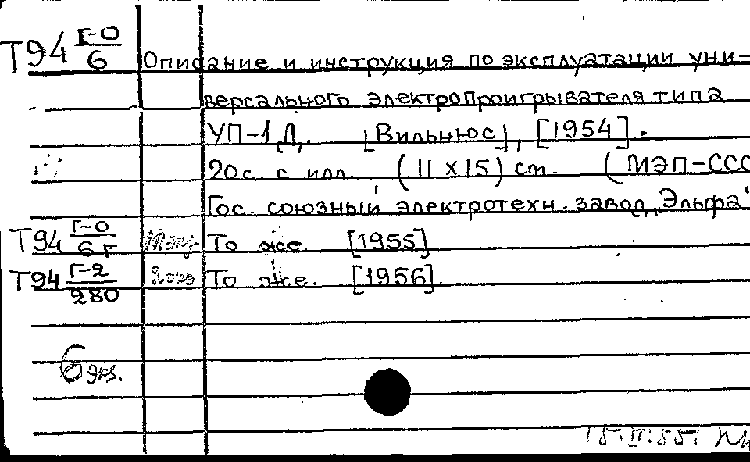 Т94 Г-0/6 Описание и инструкция по эксплуатации уни-
версального электропроигрывателя типа
УП-1 Д, [Вильнюс], [1954].
20 с. с илл. (11 х 15) см. (МЭП-СССР
Гос. союзный электротехн. завод "Эльфа"
Т94 Г-0/6 г То же. [1955]
Т94 Г-2/280 То же. [1956]
6 экз.